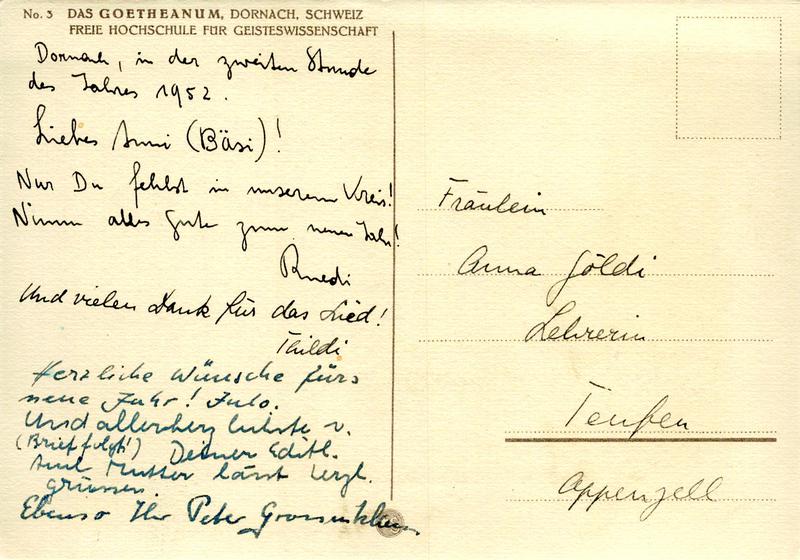 No. 3 DAS GOETHEANUM, DORNACH, SCHWEIZ
FREIE HOCHSCHULE FÜR GEISTESWISSENSCHAFT
Dornach, in der zweiten Stunde
des Jahres 1952.
Liebes Anni (Bäsi)!
Nur Du fehlst in unserem Kreis!
Nimm alles Gute zum neuen Jahr!
Ruedi
Und vielen Dank für das Lied!
Thildi
Herzliche Wünsche fürs
neue Jahr!
Und allerherzlichste v.
(Brief folgt!) Deiner Edith.
Mutter lässt herzl.
grüssen.
Ebenso Ihr Peter
Fräulein
Anna Göldi
Lehrerin
Teufen
Appenzell